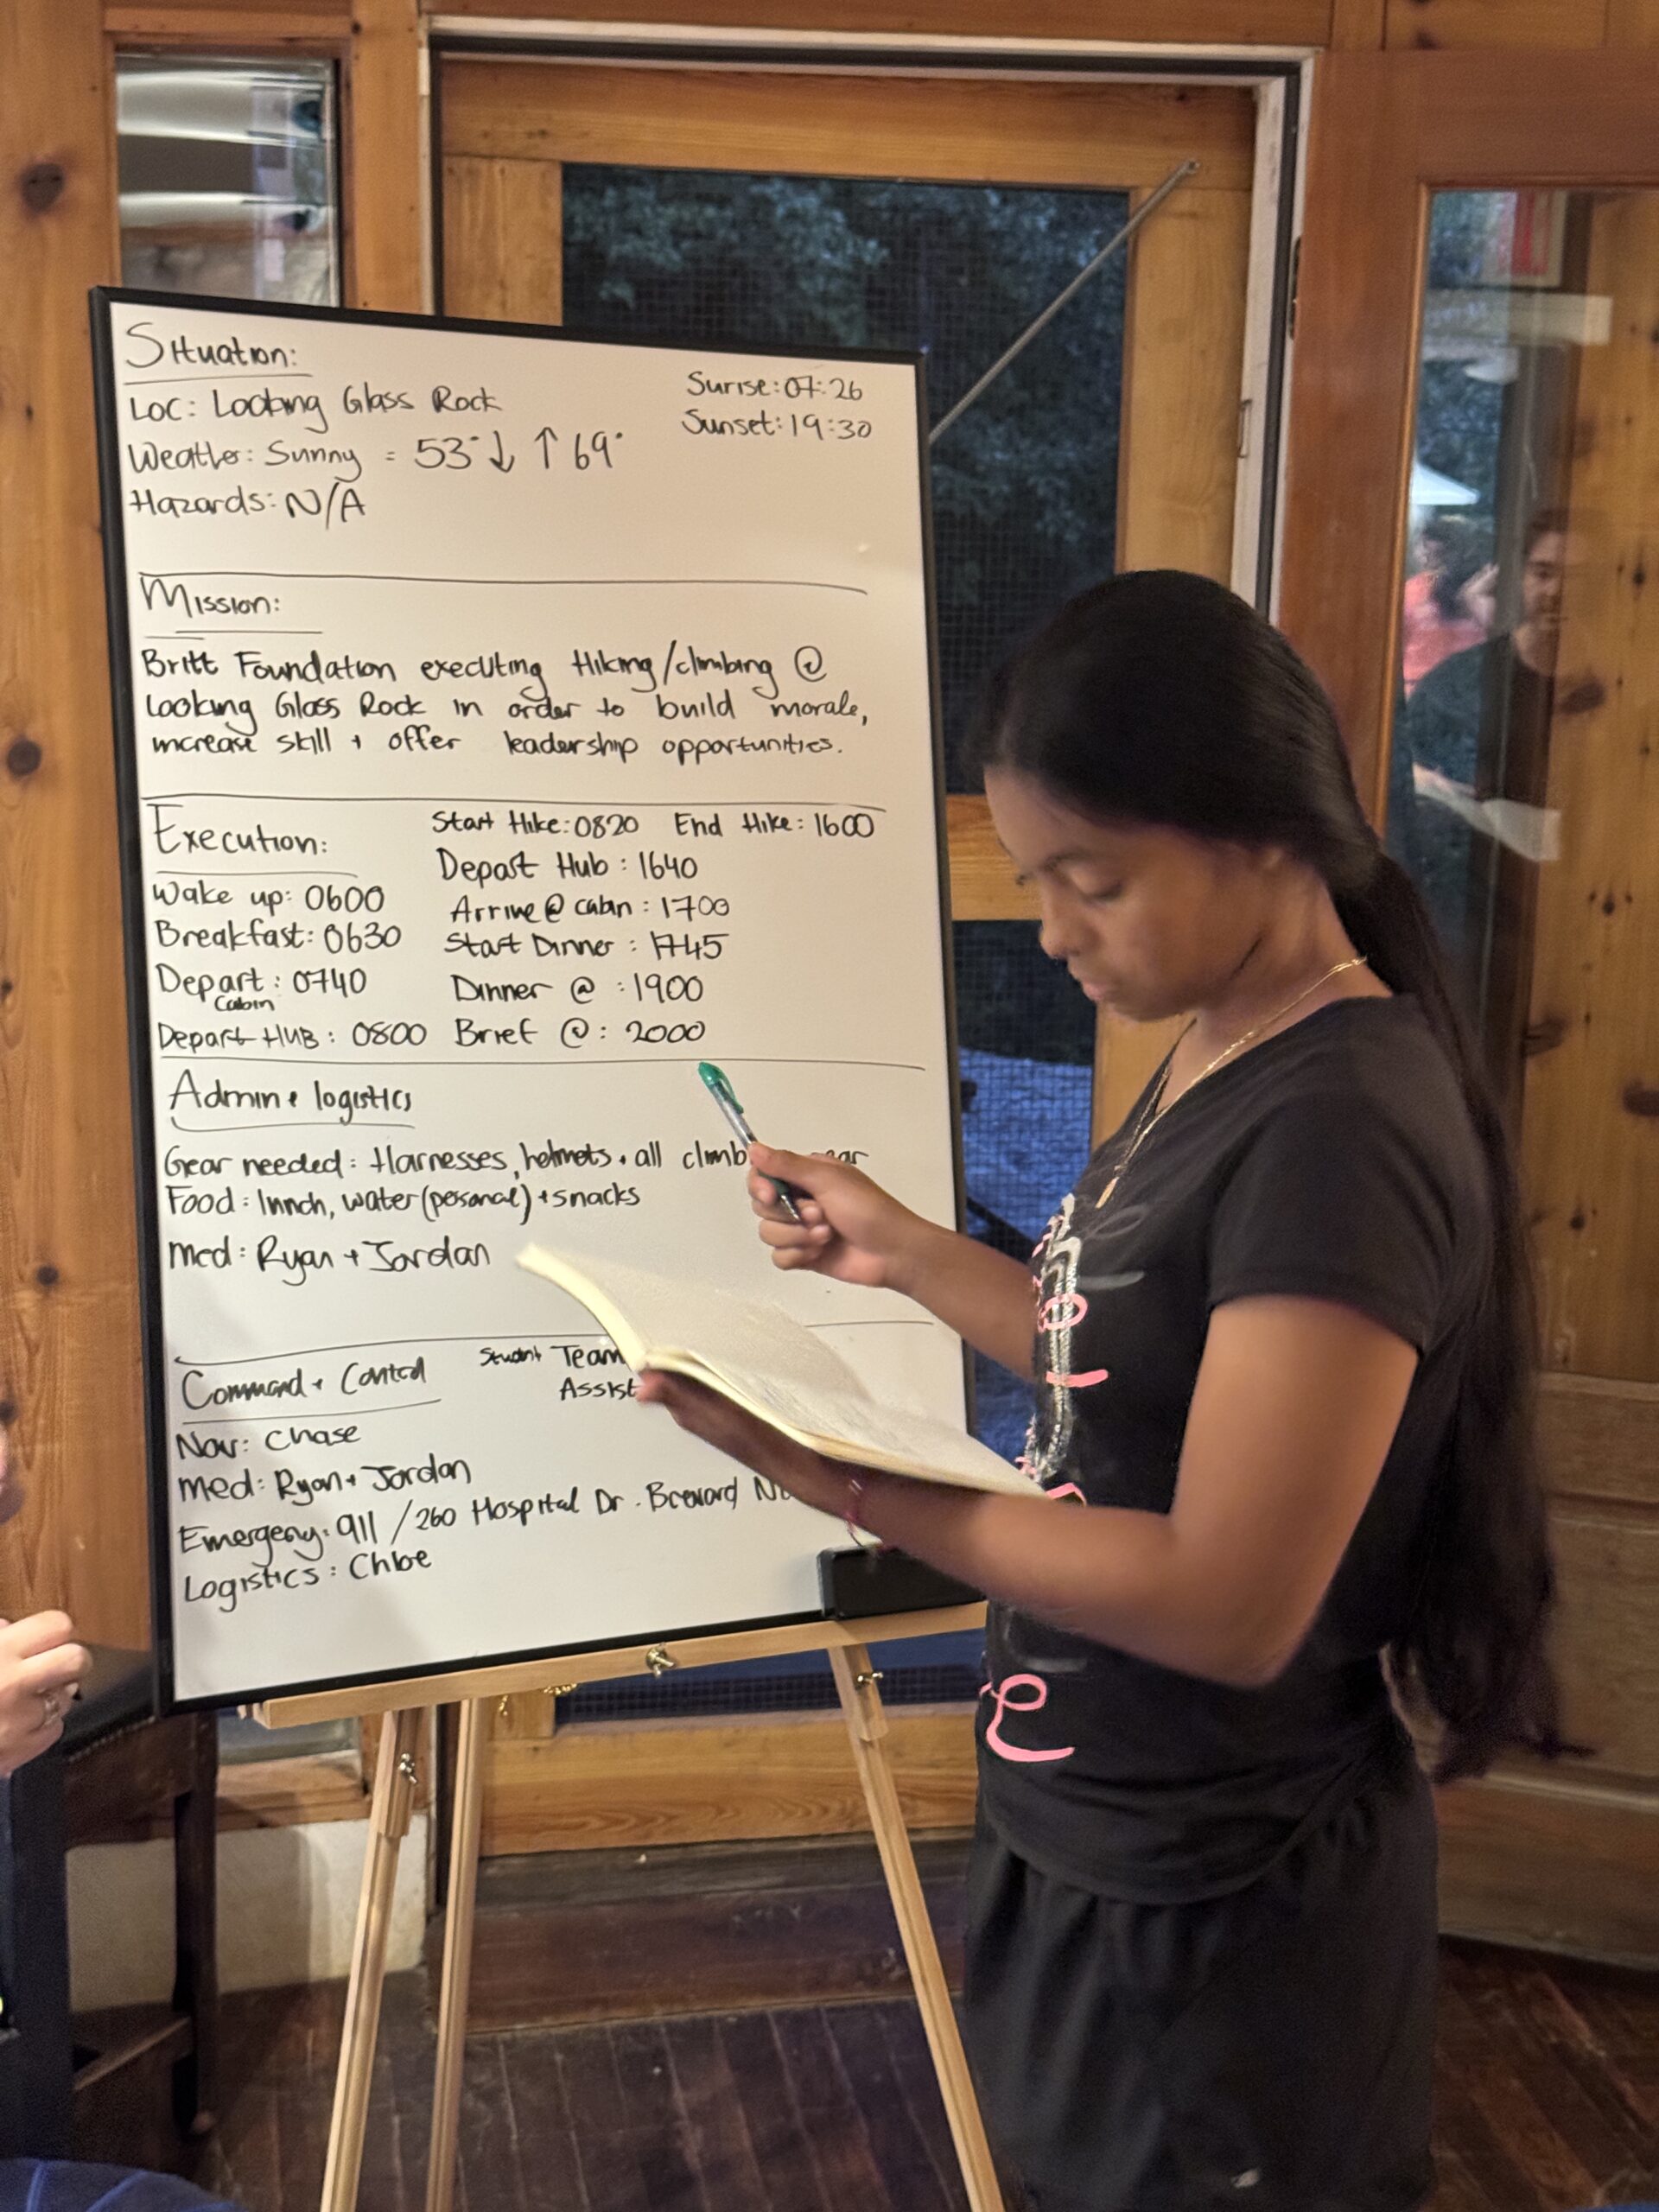 Situation:
Loc: Looking Glass Rock
Weather: Sunny = 53°↓ ↑69°
Hazards: N/A
Surise: 07:26
Sunset: 19:30
Mission:
Britt Foundation executing Hiking/climbing @
Looking Glass Rock in order to build morale,
increase skill + offer leadership opportunities.
Execution:
Wake up: 0600
Breakfast: 0630
Depart: 0740
Cabin
Depart HUB: 0800
Start Hike: 0820 End Hike: 1600
Depart Hub: 1640
Arrive @ cabin: 1700
Start Dinner: 1745
Dinner @ : 1900
Brief @: 2000
Admin + logistics
Gear needed: Harnesses, helmets + all
Food: lunch, water (personal) + snacks
Med: Ryan + Jordan
Command + Control
Student Team
Assist
Nav: Chase
Med: Ryan + Jordan
Emergency: 911 / 260 Hospital Dr. Brevard
Logistics: Chloe